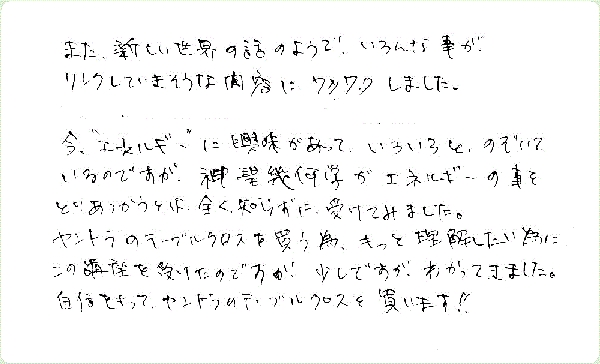 また、新しい世界の話のようで、いろんな事が
リンクしていきそうな内容にワクワクしました。
今、"エネルギー"に興味があって、いろいろと、のぞいて
いるのですが、神聖幾何学がエネルギーの事を
とりあつかうとは、全く知らずに、受けてみました。
ヤントラのテーブルクロスを買う為、もっと理解したい為に
この講座を受けたのですが、少しですが、わかってきました。
自信をもって、ヤントラのテーブルクロスを買います!!